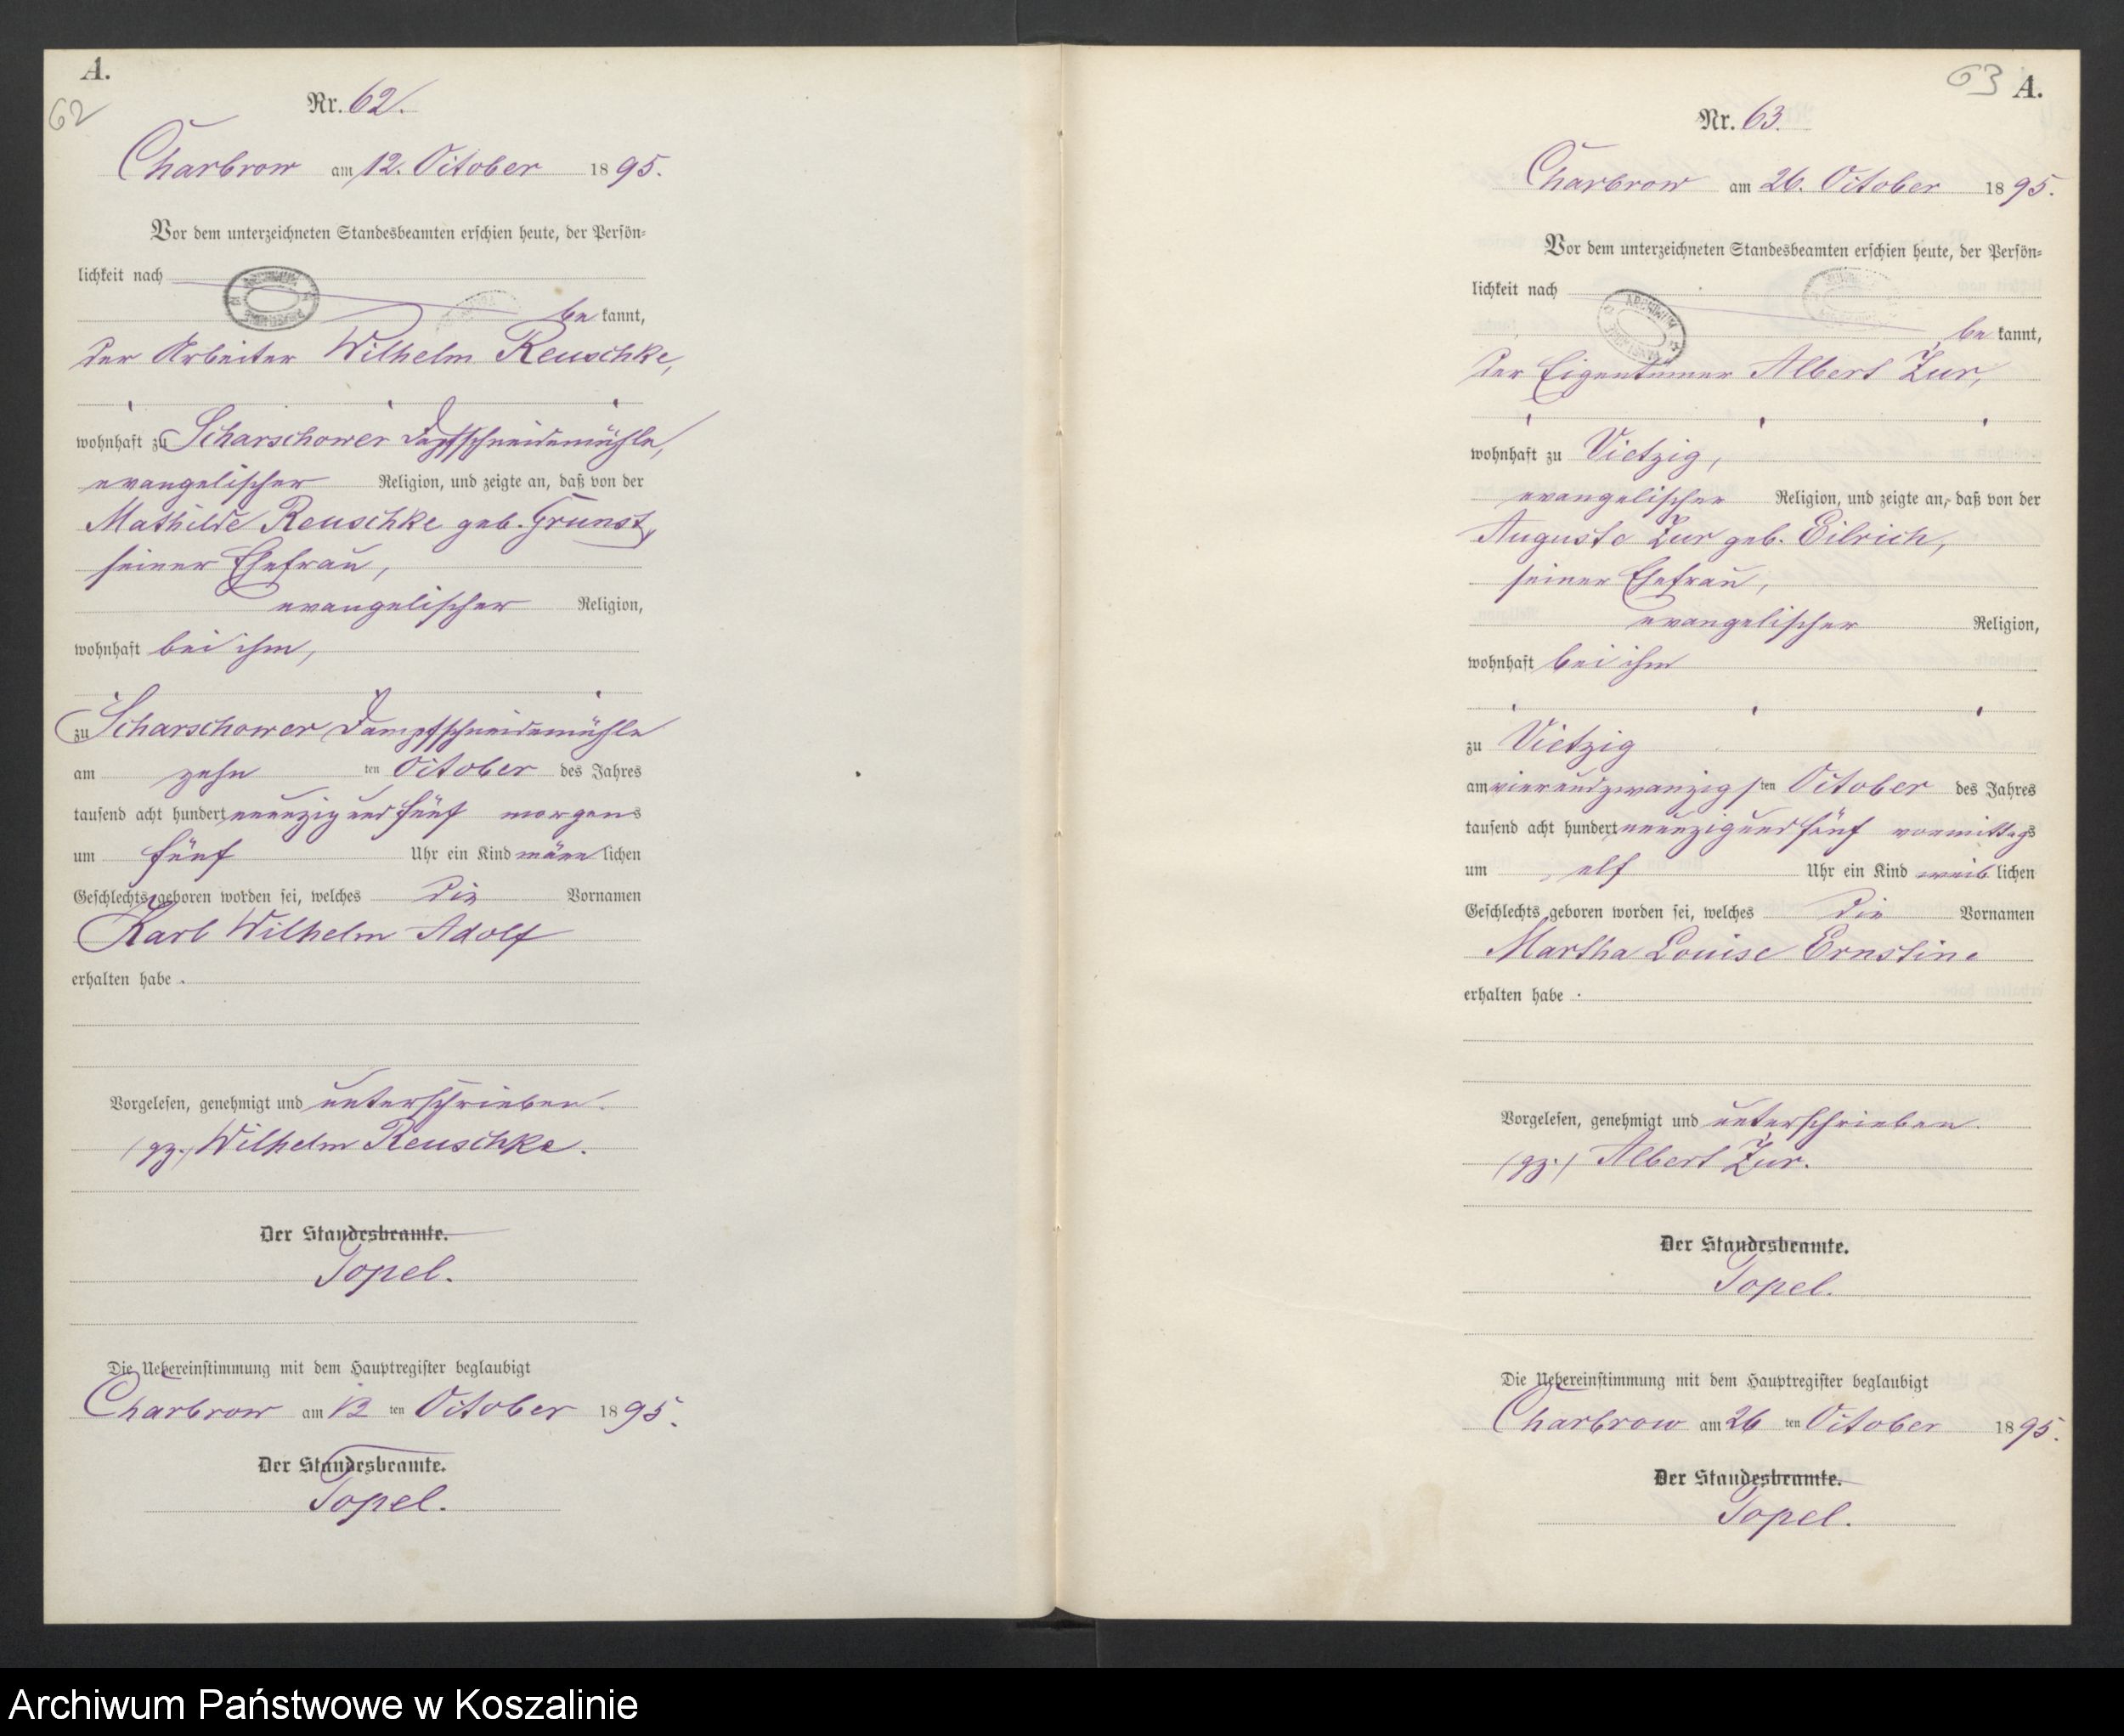 A.
62
Nr. 62.
Charbrow am 12. October 1895.
Vor dem unterzeichneten Standesbeamten erschien heute, der Persön-
lichkeit nach
be kannt,
der Arbeiter Wilhelm Reuschke,
wohnhaft zu Scharschower Dampfschneidemühle,
evangelischer Religion, und zeigte an, daß von der
Mathilde Reuschke geb. Grunst,
seiner Ehefrau,
evangelischer Religion,
wohnhaft bei ihm,
zu Scharschower Dampfschneidemühle
am zehn ten October des Jahres
tausend acht hundert neunzig und fünf morgens
um fünf Uhr ein Kind männ lichen
Geschlechts geboren worden sei, welches die Vornamen
Karl Wilhelm Adolf
erhalten habe.
Vorgelesen, genehmigt und unterschrieben.
(gz.) Wilhelm Reuschke.
Der Standesbeamte.
Topel.
Die Uebereinstimmung mit dem Hauptregister beglaubigt
Charbrow am 12 ten October 1895.
Der Standesbeamte.
Topel.
63 A.
Nr. 63.
Charbrow am 26. October 1895.
Vor dem unterzeichneten Standesbeamten erschien heute, der Persön-
lichkeit nach
be kannt,
der Eigentümer Albert Zur,
wohnhaft zu Vietzig,
evangelischer Religion, und zeigte an, daß von der
Auguste Zur geb. Eilrich,
seiner Ehefrau,
evangelischer Religion,
wohnhaft bei ihm
zu Vietzig
am vierundzwanzigs ten October des Jahres
tausend acht hundert neunzig und fünf vormittags
um elf Uhr ein Kind weib lichen
Geschlechts geboren worden sei, welches die Vornamen
Martha Louise Ernstine
erhalten habe.
Vorgelesen, genehmigt und unterschrieben.
(gz.) Albert Zur.
Der Standesbeamte.
Topel.
Die Uebereinstimmung mit dem Hauptregister beglaubigt
Charbrow am 26 ten October 1895.
Der Standesbeamte.
Topel.
Archiwum Państwowe w Koszalinie